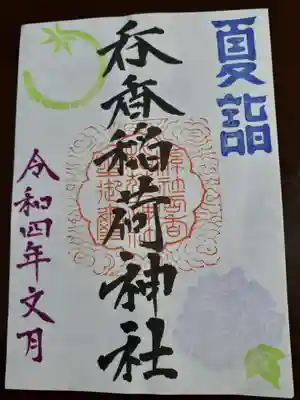 夏詣
呑香稲荷神社
令和四年文月